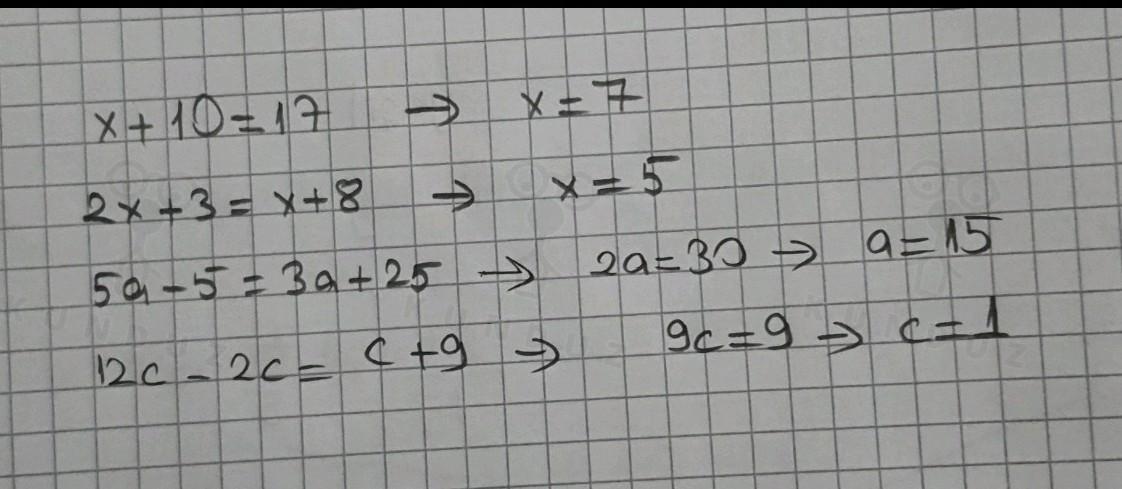 x + 10 = 17 → x = 7
2x + 3 = x + 8 → x = 5
5a - 5 = 3a + 25 → 2a = 30 → a = 15
12c - 2c = c + 9 → 9c = 9 → c = 1
KUNDUZ